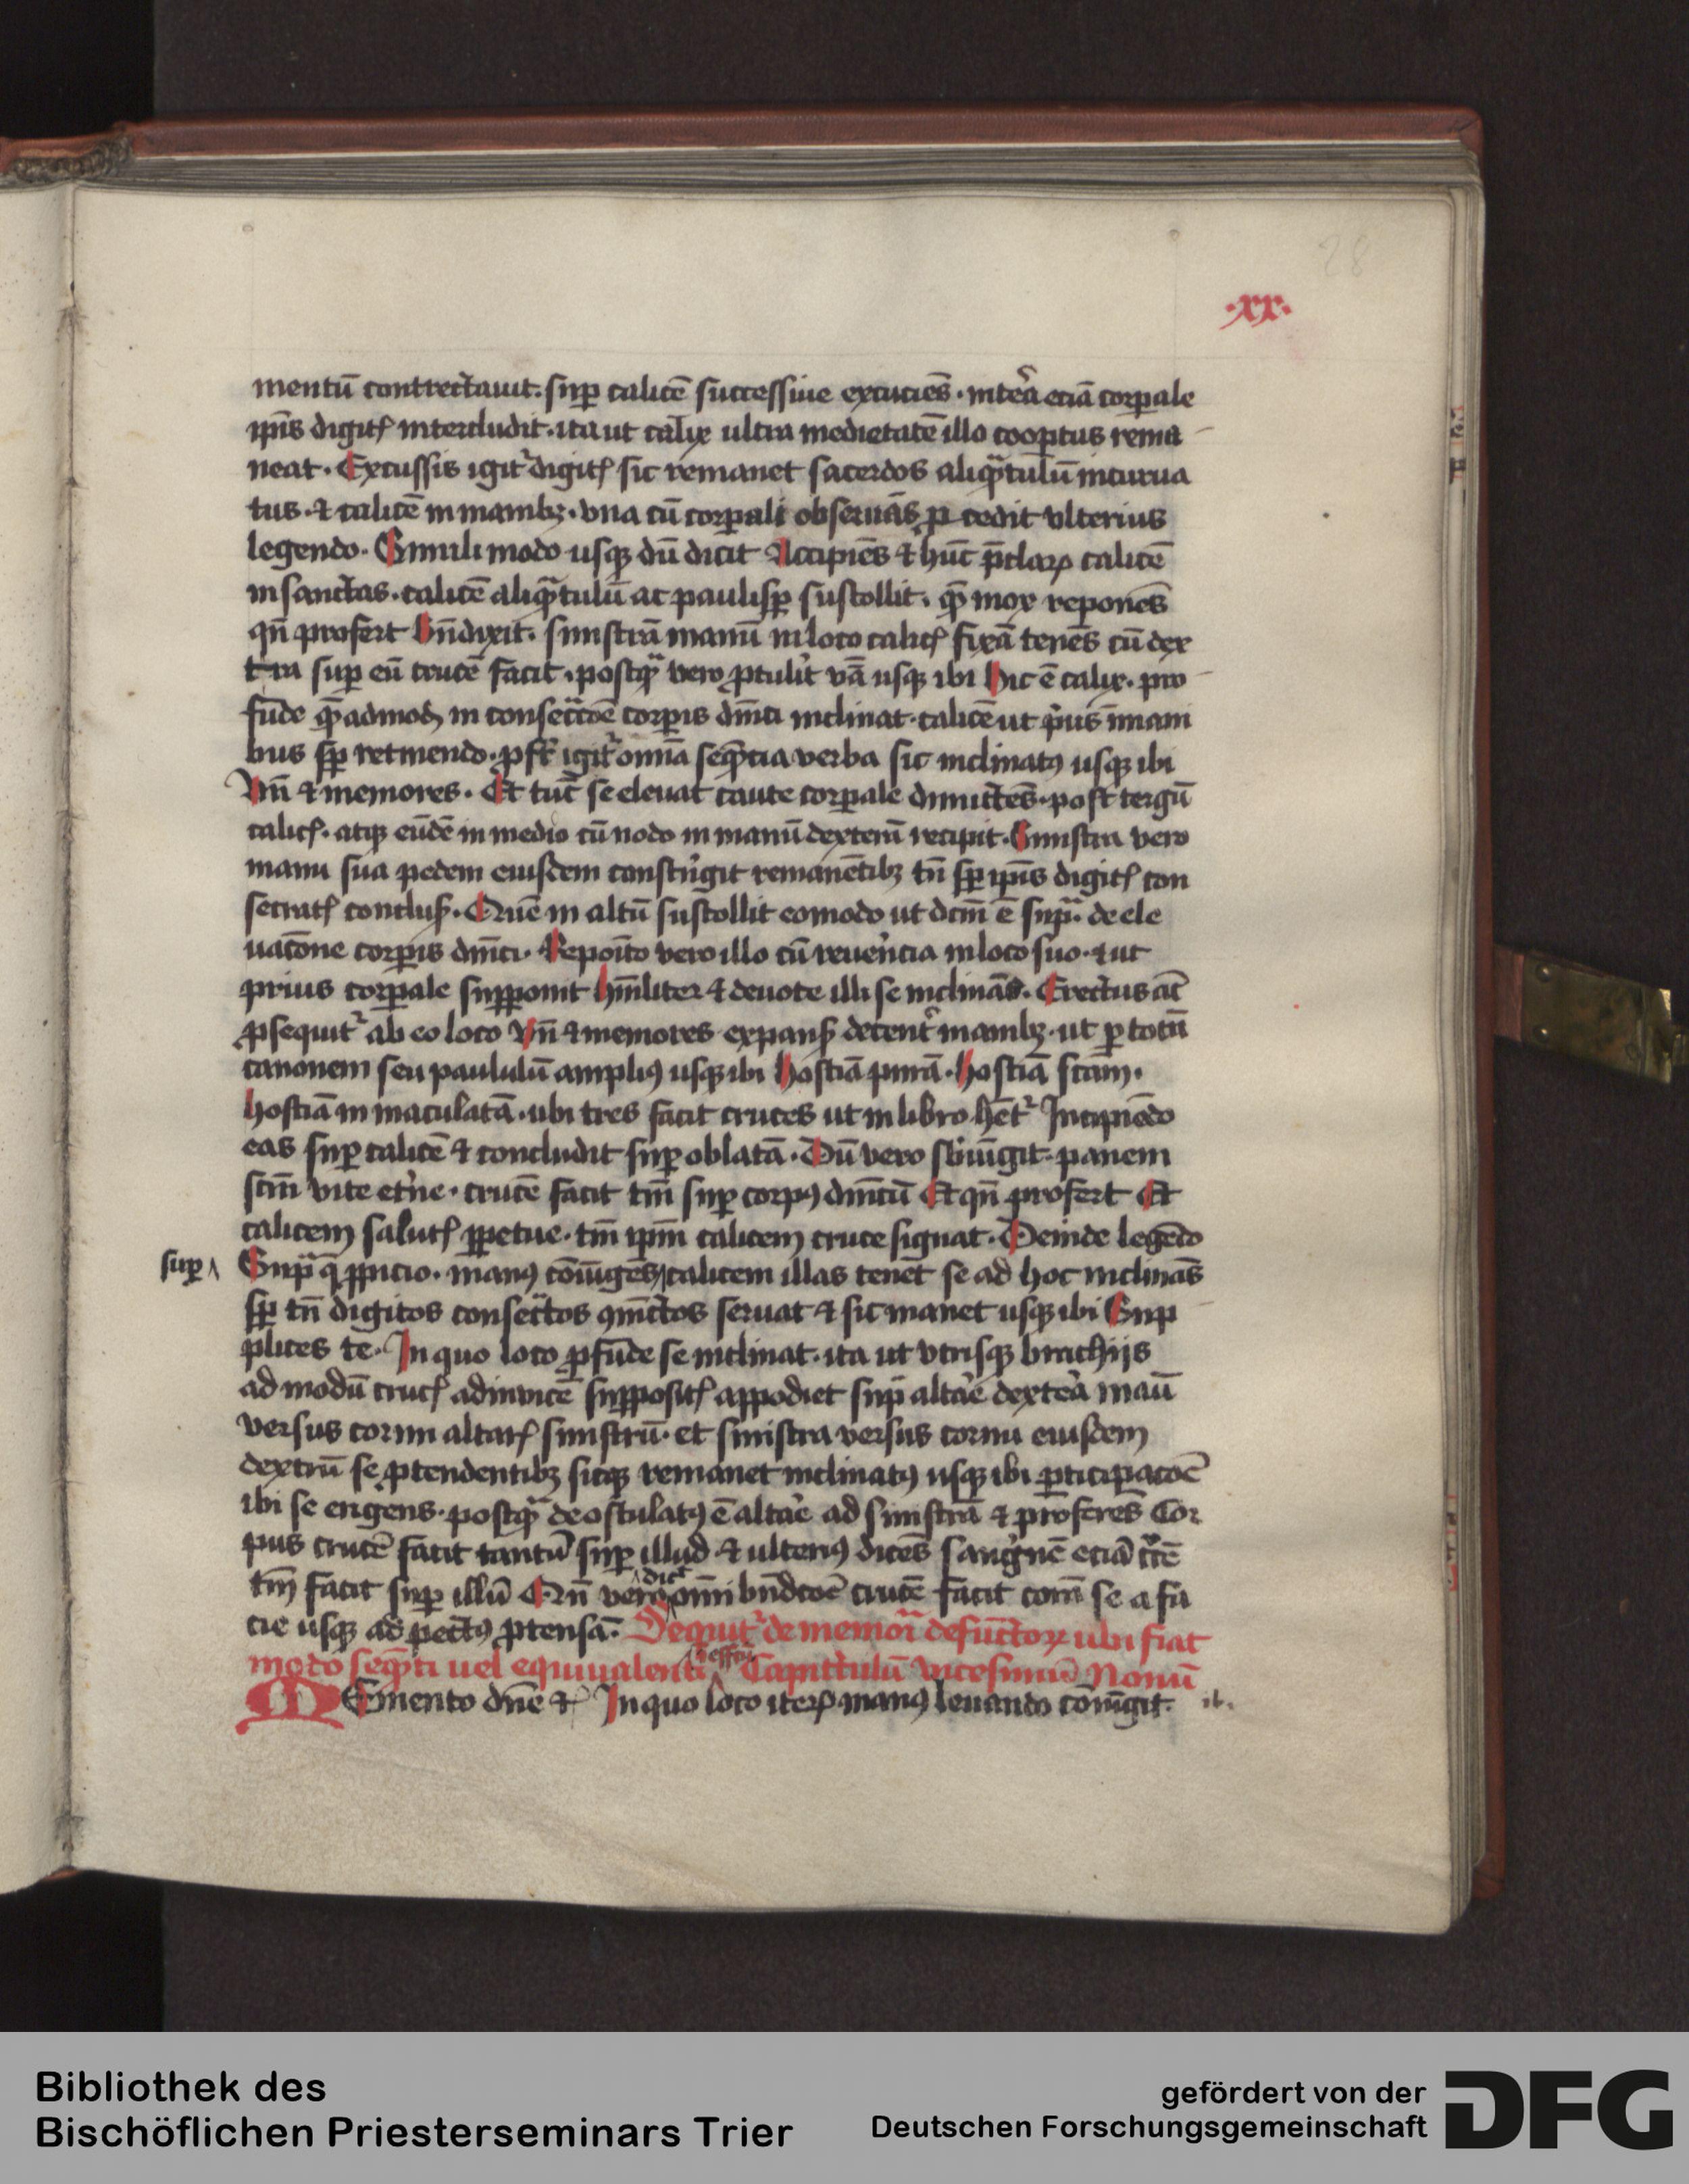 28
·xx·
mentū contrectauit. sup calicē successiue excuciēs · inteꝛ̄a eciā corꝑale
ipīs digitꝭ intercludit · ita ut calix ultra medietatē illo cooꝑtus rema
neat · Excussis igitᷣ digitꝭ sic remanet sacerdos aliqᷓtulū incurua
tus · ⁊ calicē in manibꝫ · vna cū corꝑali obseruās ꝓcedit vlterius
legendo · Simili modo usqꝫ dū dicit Accipiēs ⁊ hūc p̄claꝝ calicē
in sanctas · calicē aliqᷓtulū ac paulisꝑ sustollit · quē mox reponēs
qn̄ profert bn̄dixit · sinistrā manū in loco calicꝭ fixā tenēs cū dex
tra suꝑ eū crucē facit · postqᷓ vero ꝓtulit vā usqꝫ ibi hic ē calix · pro
fūde quēadmodū in consecrōe corꝑis dn̄ici inclinat · calicē ut prius in mani
bus sꝑ retinendo · ꝓfert igitᷣ omnia sequētia verba sic inclinatꝰ usqꝫ ibi
Vn̄ ⁊ memores · Et tūc se eleuat caute corꝑale dimittēs · post tergū
calicꝭ · atqꝫ eūdē in medio cū nodo in manū dexterā recipit · Sinistra vero
manu sua pedem eiusdem constringit remanētibꝫ tn̄ sꝑ ipīs digitꝭ con
secratꝭ conclusꝭ · Quē in altū sustollit eomodo ut dcm̄ ē supᷓ · de ele
uacōne corꝑis dn̄ici · Repoīto vero illo cū reuerēcia in loco suo · ⁊ ut
prius corꝑale supponit hūiliter ⁊ deuote illi se inclinās · Erectus aūt
ꝓsequitᷣ ab eo loco Vn̄ ⁊ memores expansꝭ decenter manibꝫ · ut ꝑ totū
canonem seu paululū ampliꝰ usqꝫ ibi hostiā purā · hostiā scām ·
hostiā inmaculatā · ubi tres facit cruces ut in libro hētᷣ Incipiēdo
eas suꝑ calicē ⁊ concludit suꝑ oblatā · Dū vero sbiūgit · panem
scm̄ vite et̄ne · crucē facit tm̄ suꝑ corpꝰ dn̄icū Et qn̄ profert Et
calicem salutꝭ ꝑpetue · tm̄ ipm̄ calicem cruce signat · Deinde legēdo
suꝑ ʌ Supᷓ q̄ ꝓpicio · manꝰ cōiūgēs calicem illas tenet se ad hoc inclinās
sꝑ tn̄ digitos consecᷓtos ꝯiūctos seruat ⁊ sic manet usqꝫ ibi Sup
plices te · In quo loco ꝓfūde se inclinat · ita ut vtrisqꝫ brachijs
ad modū crucꝭ adinuicē suppositꝭ appodiet sup̄ altare dextera manū
versus cornu altarꝭ sinistrū · et sinistra versus cornu eiusdem
dextrū se ꝓtendentibꝫ sicqꝫ remanet inclinatꝰ usqꝫ ibi ꝑticipacōe
ibi se erigens · postqᷓ deosculatꝰ ē altare ad sinistrā ⁊ proferēs Cor
pus crucē facit tantū suꝑ illud ⁊ ulteriꝰ dicēs sanguinē eciā crucē
tm̄ facit suꝑ illū Qn̄ vero dicit om̄i bn̄dcōe crucē facit corā se a fa
cie usqꝫ ad pectꝰ ꝓtensā · Sequitᷣ de memoria defūctoꝝ ubi fiat
modo sequēti uel equiualenti effcū Capittulū vicesimū Nonū
MEmento dn̄e ⁊ In quo loco iteꝝ manꝰ leuando cōiūgit · ib.
Bibliothek des
Bischöflichen Priesterseminars Trier
gefördert von der
Deutschen Forschungsgemeinschaft
DFG